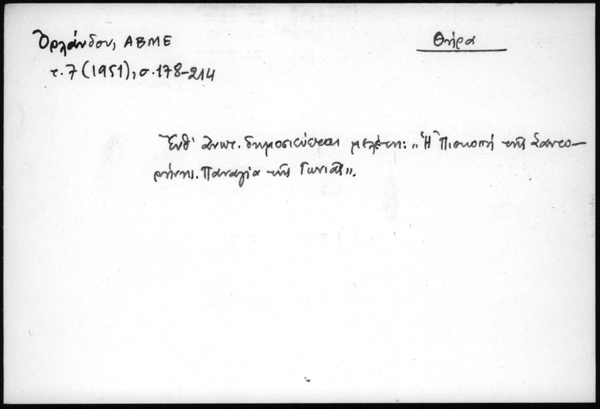 Ὀρλάνδου, ΑΒΜΕ
Θήρα
τ. 7 (1951), σ. 178-214
Ἐνθ' ἀνωτ. δημοσιεύεται μελέτη: „Ἡ Πισκοπὴ τῆς Σαντο-
ρήνης. Παναγία τῆς Γωνιᾶς”.